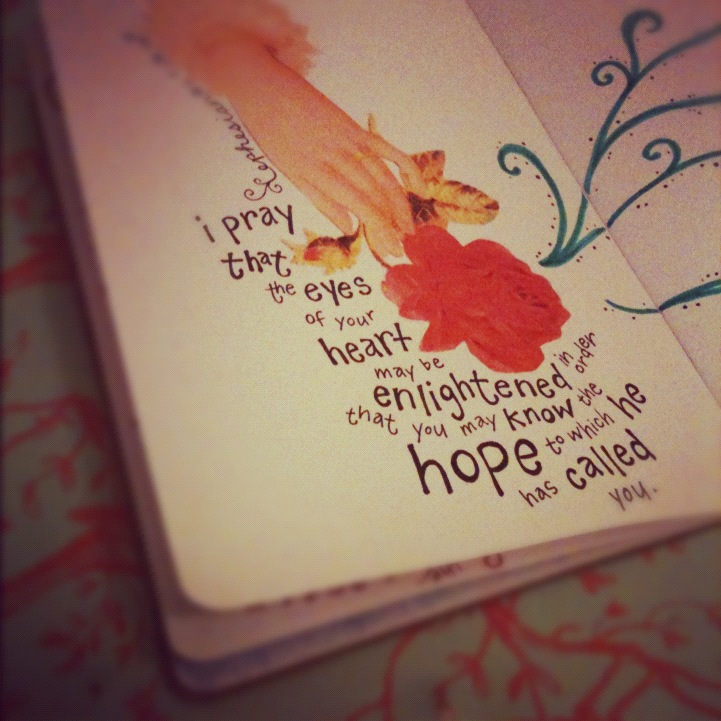 ephesians
i pray
that
the eyes
of your
heart
may be
enlightened in order
that you may know the
hope to which he
has called
you.